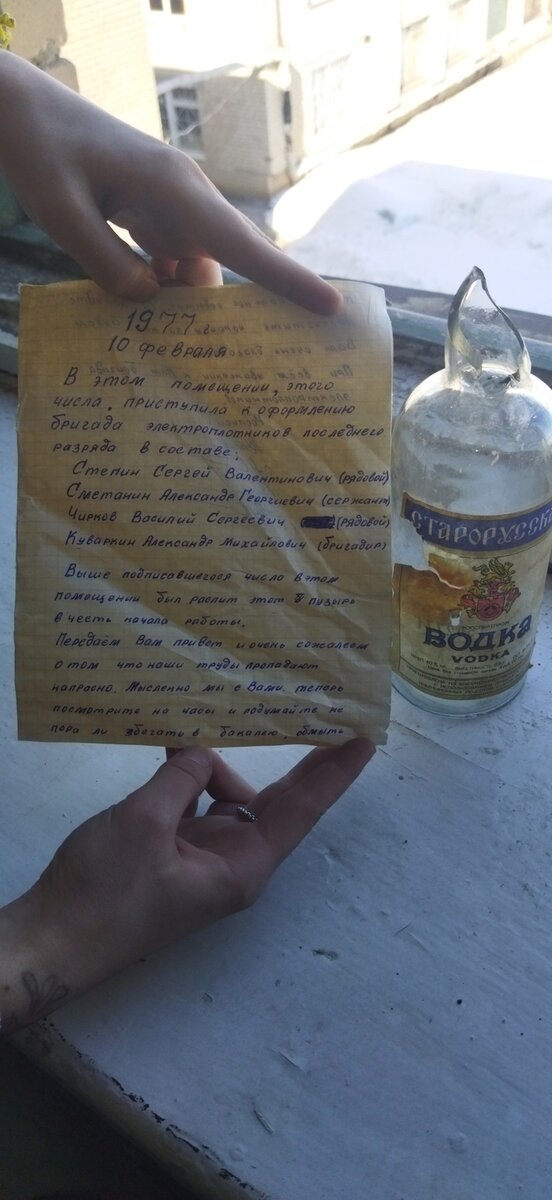 1977
10 февраля
В этом помещении, этого
числа, приступила к оформлению
бригада электроплотников последнего
разряда в составе:
Степин Сергей Валентинович (рядовой)
Сметанин Александр Георгиевич (сержант)
Чирков Василий Сергеевич (рядовой)
Куваркин Александр Михайлович (бригадир)
Выше подписавшегося число в этом
помещении был распит этот пузырь
в честь начала работы.
Передаём Вам привет и очень сожалеем
о том что наши труды пропадают
напрасно. Мысленно мы с Вами. теперь
посмотрите на часы и подумайте не
пора ли сбегать в бакалею, обмыть
СТАРОРУССКАЯ
ВОДКА
VODKA